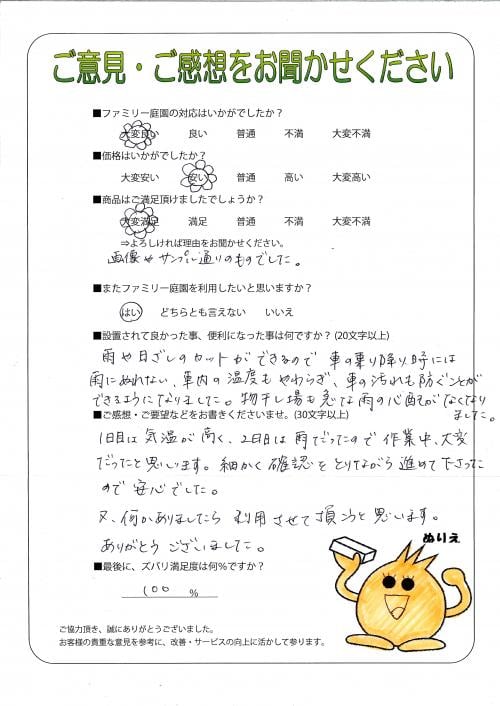 ご意見・ご感想をお聞かせください
■ファミリー庭園の対応はいかがでしたか？
大変良い 良い 普通 不満 大変不満
■価格はいかがでしたか？
大変安い 安い 普通 高い 大変高い
■商品はご満足頂けましたでしょうか？
大変満足 満足 普通 不満 大変不満
⇒よろしければ理由をお聞かせください。
画像やサンプル通りのものでした。
■またファミリー庭園を利用したいと思いますか？
はい どちらとも言えない いいえ
■設置されて良かった事、便利になった事は何ですか？(20文字以上)
雨や日ざしのカットができるので車の乗り降り時には
雨にぬれない、車内の温度もやわらぎ、車の汚れも防ぐことが
できるようになりました。物干し場も急な雨の心配がなくなり
ました。
■ご感想・ご要望などをお書きくださいませ。(30文字以上)
1日目は気温が高く、2日目は雨だったので作業中、大変
だったと思います。細かく確認をとりながら進めて下さった
ので安心でした。
又、何かありましたら利用させて頂こうと思います。
ありがとうございました。
ぬりえ
■最後に、ズバリ満足度は何％ですか？
100 %
ご協力頂き、誠にありがとうございました。
お客様の貴重な意見を参考に、改善・サービスの向上に活かして参ります。